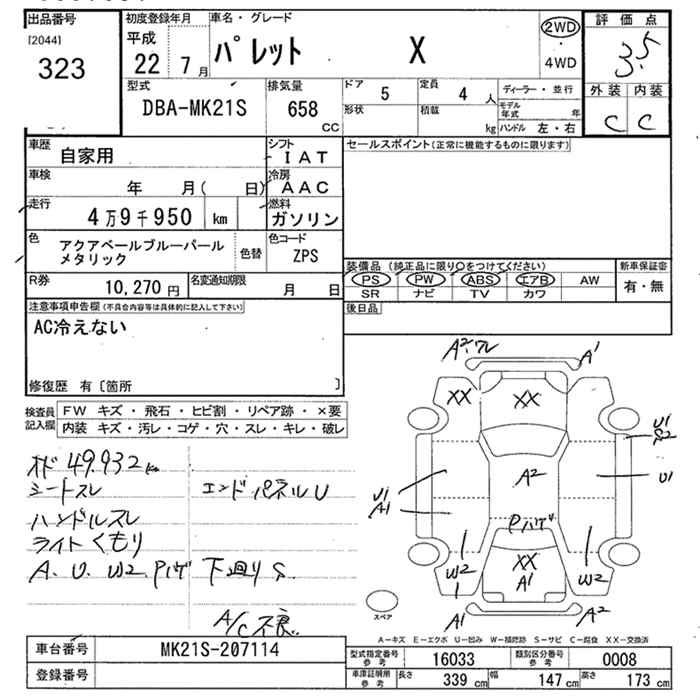 出品番号
[2044]
323
初度登録年月
平成
22 7月
車名・グレード
パレット X
2WD
・
4WD
評価点
3.5
外装 内装
C C
型式
DBA-MK21S
排気量
658
CC
ドア 5
定員 4人
形状
積載 kg
ディーラー・並行
モデル年式 年
ハンドル 左・右
車歴
自家用
シフト
IAT
車検
年 月( 日)
冷房
AAC
走行
4万9千950 km
燃料
ガソリン
色
アクアベールブルーパール
メタリック
色替
色コード
ZPS
R券
10,270円
名変通知期限
月 日
セールスポイント(正常に機能するものに限ります)
装備品 (純正品に限り○をつけてください)
新車保証書
PS PW ABS エアB AW
有・無
SR ナビ TV カワ
後日品
注意事項申告欄(不具合内容等は具体的に記入して下さい)
AC冷えない
修復歴 有〔箇所 〕
検査員
記入欄
FW キズ・飛石・ヒビ割・リペア跡・×要
内装 キズ・汚レ・コゲ・穴・スレ・キレ・破レ
オド 49.932km
シートスレ エンドパネルU
ハンドルスレ
ライトくもり
A、U、W2、Pハゲ 下廻りS
A/C不良
A2・ワレ A1
XX XX
U1
S2
A2
U1
U1
A1
Pハゲ
W2 XX W2
A1
A1 A2
スペア
A-キズ E-エクボ U-凹み W-補修跡 S-サビ C-腐食 XX-交換済
車台番号 MK21S-207114
登録番号
型式指定番号
参考
16033
類別区分番号
参考
0008
車庫証明用
参考
長さ 339 cm 幅 147 cm 高さ 173 cm